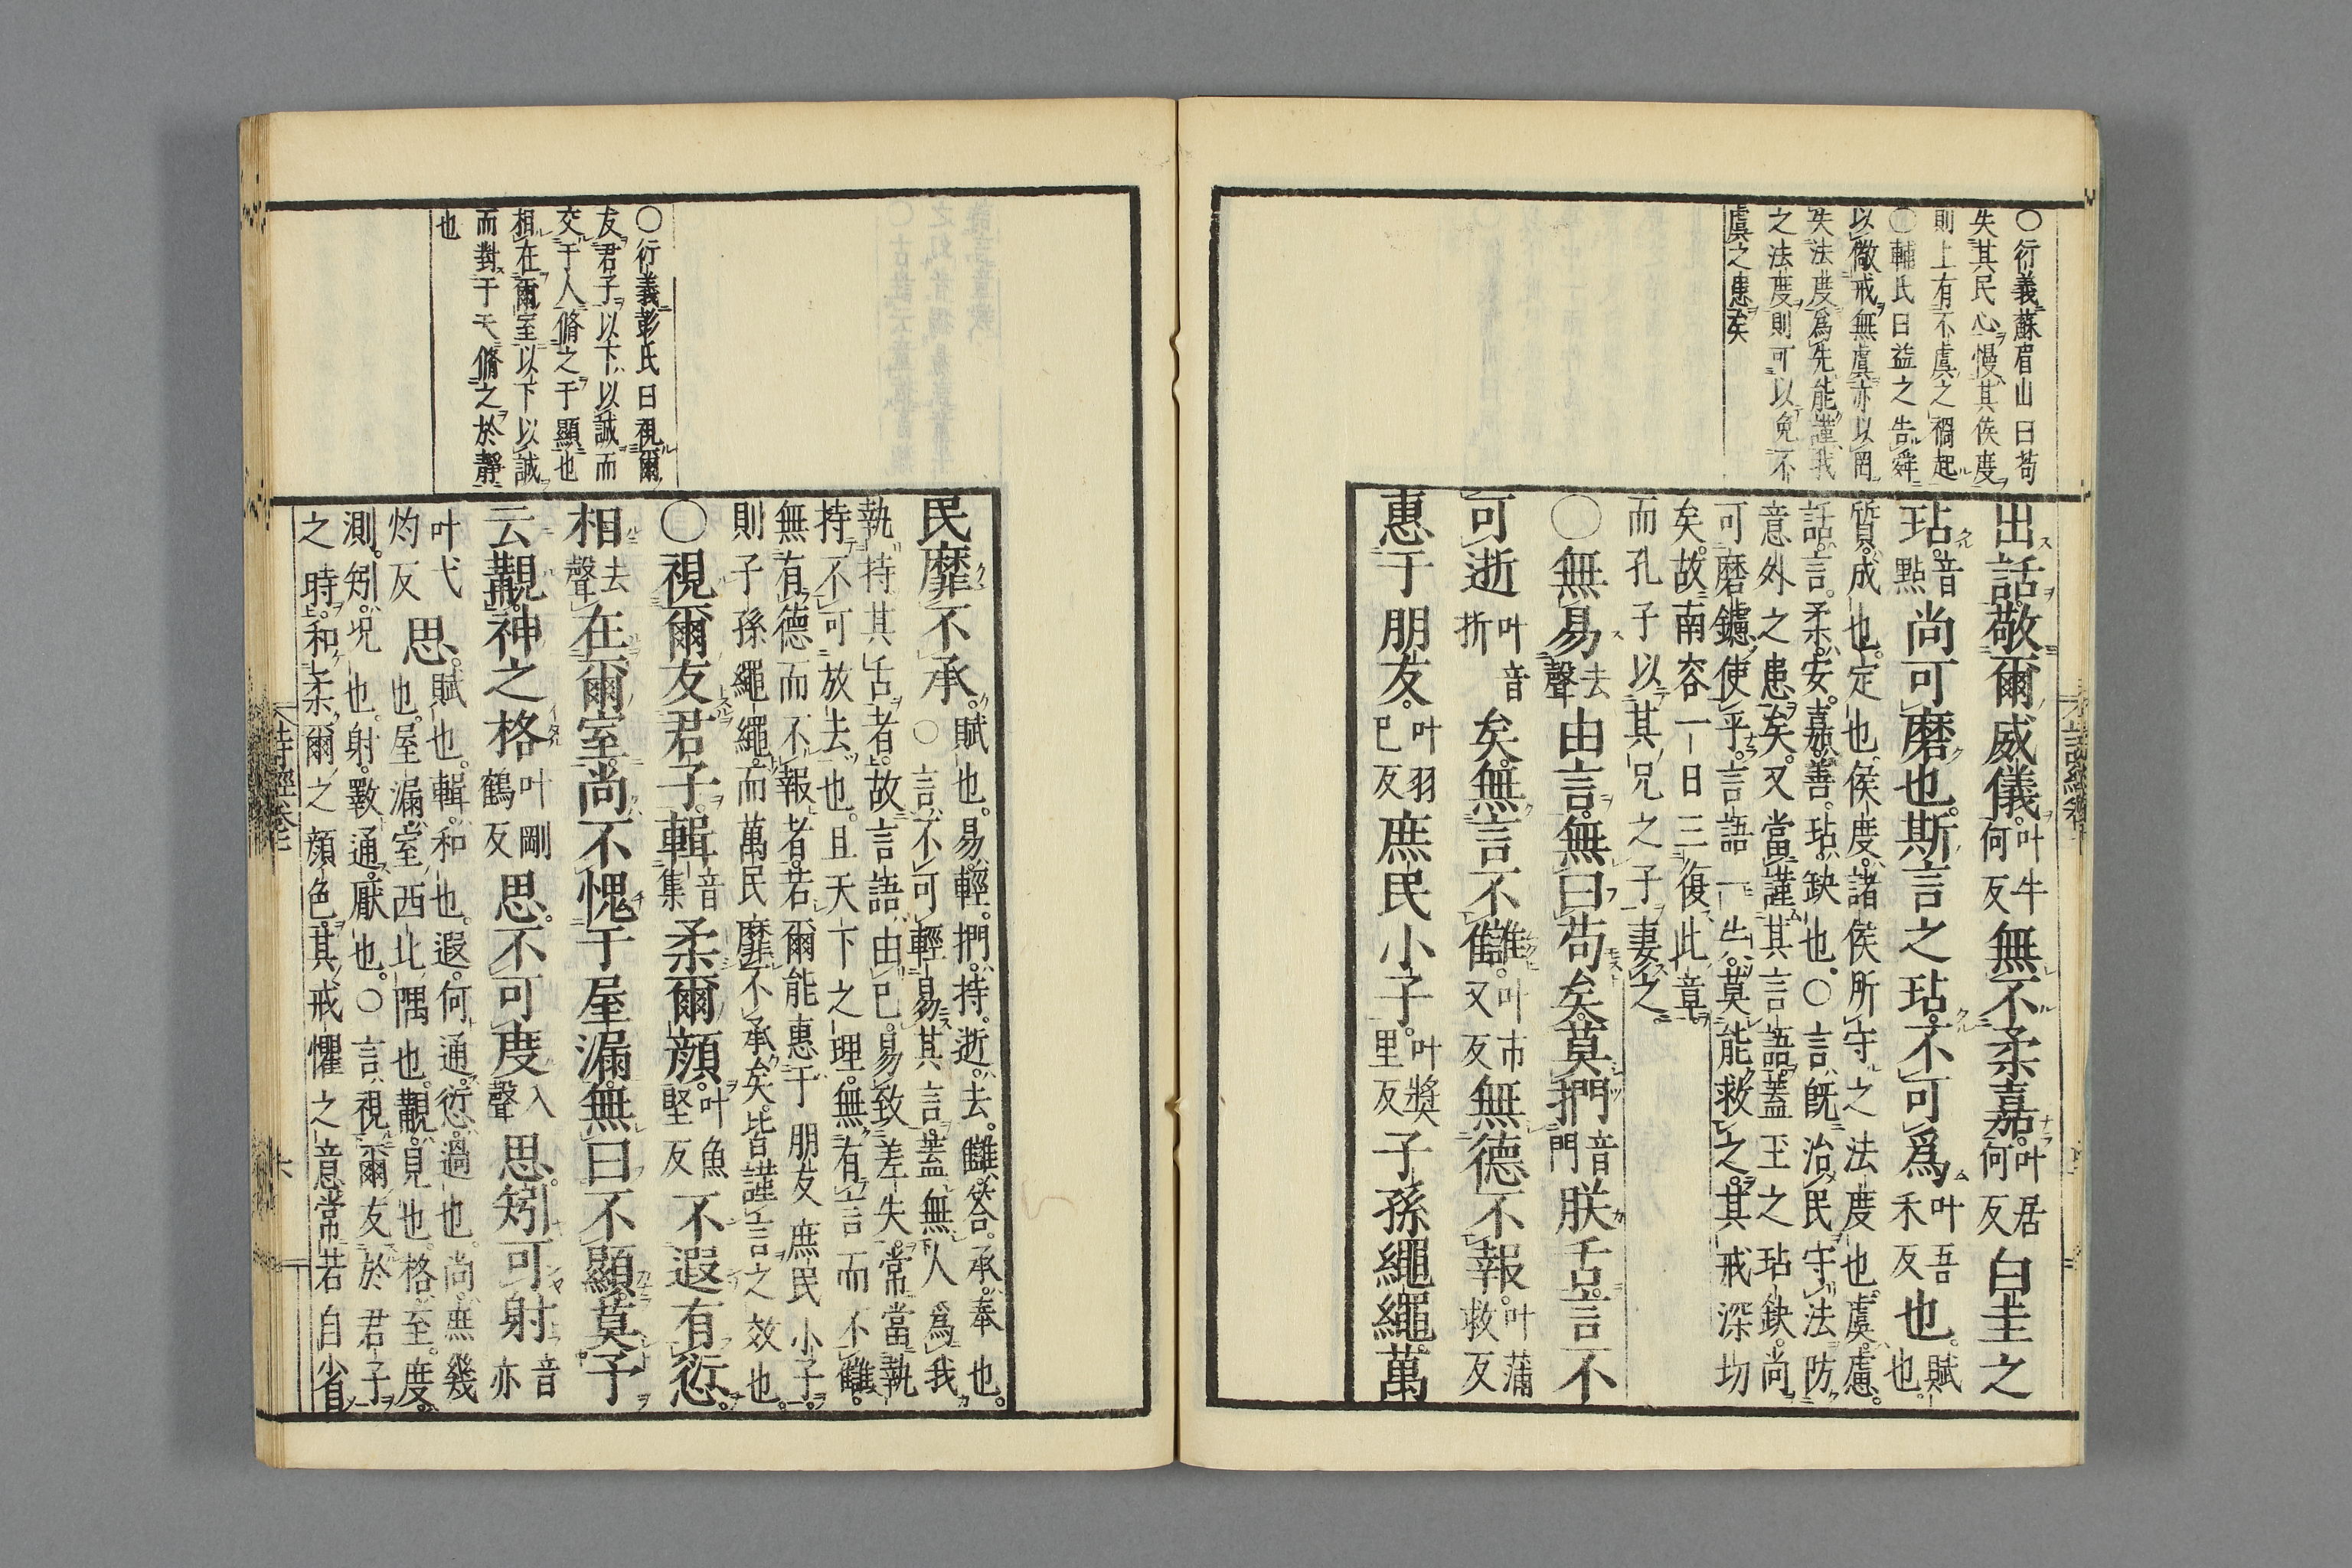 〇衍義蘇眉山曰苟
失其民心慢其侯度
則上有不虞之禍起
〇輔氏曰益之告舜
以儆戒無虞亦以罔
失法度爲先能謹我
之法度則可以免不
虞之患矣
出話敬爾威儀叶牛何反無不柔嘉叶居何反白圭之
玷音點尚可磨也斯言之玷不可爲叶吾禾反也賦也
質成也定也侯度諸侯所守之法度也虞慮
話言柔安嘉善玷缺也〇言既治民守法防
意外之患矣又當謹其言語蓋玉之玷缺尚
可磨鑢使平言語一失莫能救之其戒深切
矣故南容一日三復此章
而孔子以其兄之子妻之
〇無易去聲由言無曰苟矣莫捫音門朕舌言不
可逝叶音折矣無言不讎叶市又反無德不報叶蒲救反
惠于朋友叶羽已反庶民小子叶奬里反子孫繩繩萬
〇衍義彭氏曰視爾
友君子以下以誠而
交于人脩之于顯也
相在爾室以下以誠
而對于天脩之於靜
也
民靡不承賦也易輕捫持逝去讎答承奉也
〇言不可輕易其言蓋無人爲我
執持其舌者故言語由己易致差失常當執
持不可放去也且天下之理無有言而不讎
無有德而不報者若爾能惠于朋友庶民小子
則子孫繩繩而萬民靡不承矣皆謹言之效也
〇視爾友君子輯音集柔爾顔叶魚堅反不遐有愆
相去聲在爾室尚不愧于屋漏無曰不顯莫予
云覯神之格叶剛鶴反思不可度入聲思矧可射音亦
叶弋灼反思賦也輯和也遐何通愆過也尚庶幾
也屋漏室西北隅也覯見也格至度
測矧況也射斁通厭也〇言視爾友於君子
之時和柔爾之顔色其戒懼之意常若自省
詩經卷七
六